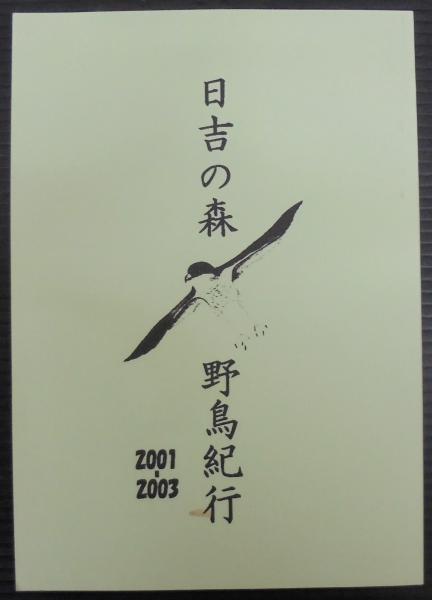 日吉の森
野鳥紀行
2001
-
2003